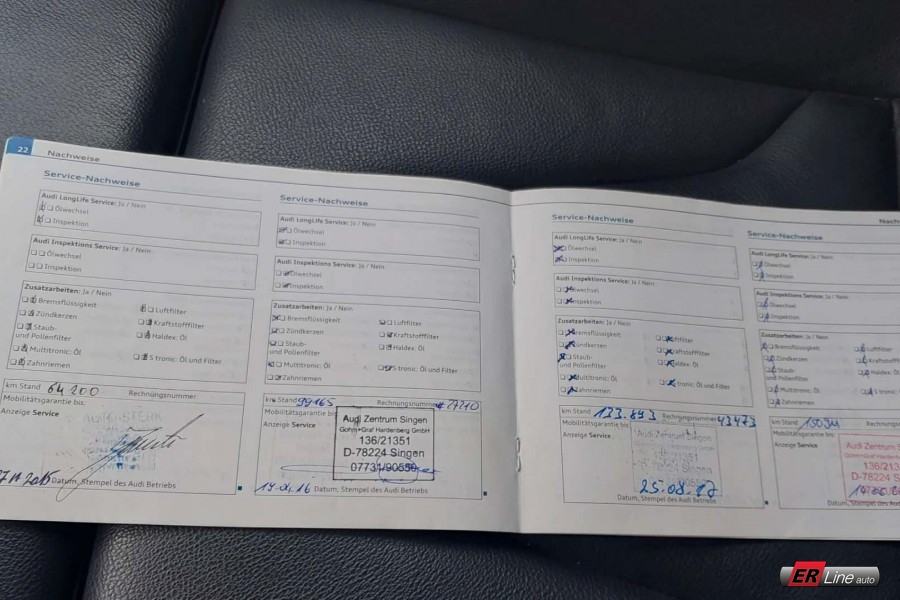 22 Nachweise
Service-Nachweise
Audi LongLife Service: Ja / Nein
Ölwechsel
Inspektion
Audi Inspektions Service: Ja / Nein
Ölwechsel
Inspektion
Zusatzarbeiten: Ja / Nein
Bremsflüssigkeit
Luftfilter
Zündkerzen
Kraftstofffilter
Staub-
und Pollenfilter
Haldex: Öl
Multitronic: Öl
S tronic: Öl und Filter
Zahnriemen
km Stand 64 200 Rechnungsnummer
Mobilitätsgarantie bis:
Anzeige Service
Datum, Stempel des Audi Betriebs
Service-Nachweise
Audi LongLife Service: Ja / Nein
Ölwechsel
Inspektion
Audi Inspektions Service: Ja / Nein
Ölwechsel
Inspektion
Zusatzarbeiten: Ja / Nein
Bremsflüssigkeit
Luftfilter
Zündkerzen
Kraftstofffilter
Staub-
und Pollenfilter
Haldex: Öl
Multitronic: Öl
S tronic: Öl und Filter
Zahnriemen
km Stand 99165 Rechnungsnummer
Mobilitätsgarantie bis:
Anzeige Service
Audi Zentrum Singen
Gohm+Graf Hardenberg GmbH
136/21351
D-78224 Singen
07731/90550
Datum, Stempel des Audi Betriebs
Service-Nachweise
Audi LongLife Service: Ja / Nein
Ölwechsel
Inspektion
Audi Inspektions Service: Ja / Nein
Ölwechsel
Inspektion
Zusatzarbeiten: Ja / Nein
Bremsflüssigkeit
Luftfilter
Zündkerzen
Kraftstofffilter
Staub-
und Pollenfilter
Haldex: Öl
Multitronic: Öl
S tronic: Öl und Filter
Zahnriemen
km Stand 133.893 Rechnungsnummer 43473
Mobilitätsgarantie bis
Anzeige Service
Audi Zentrum Singen
136/21351
D-78224 Singen
25.08.17
Datum, Stempel des Audi Betriebs
Nach
Service-Nachweise
Audi LongLife Service: Ja / Nein
Ölwechsel
Inspektion
Audi Inspektions Service: Ja / Nein
Ölwechsel
Inspektion
Zusatzarbeiten: Ja / Nein
Bremsflüssigkeit
Luftfilter
Zündkerzen
Kraftstofffilter
Staub-
und Pollenfilter
Haldex: Öl
Multitronic: Öl
Zahnriemen
km Stand
Mobilitätsgarantie bis:
Anzeige Service
Audi Zentrum S
Gohm+Graf Hardenberg
136/213
D-78224 S
Datum, Stempel des Audi Betri
ER Line auto